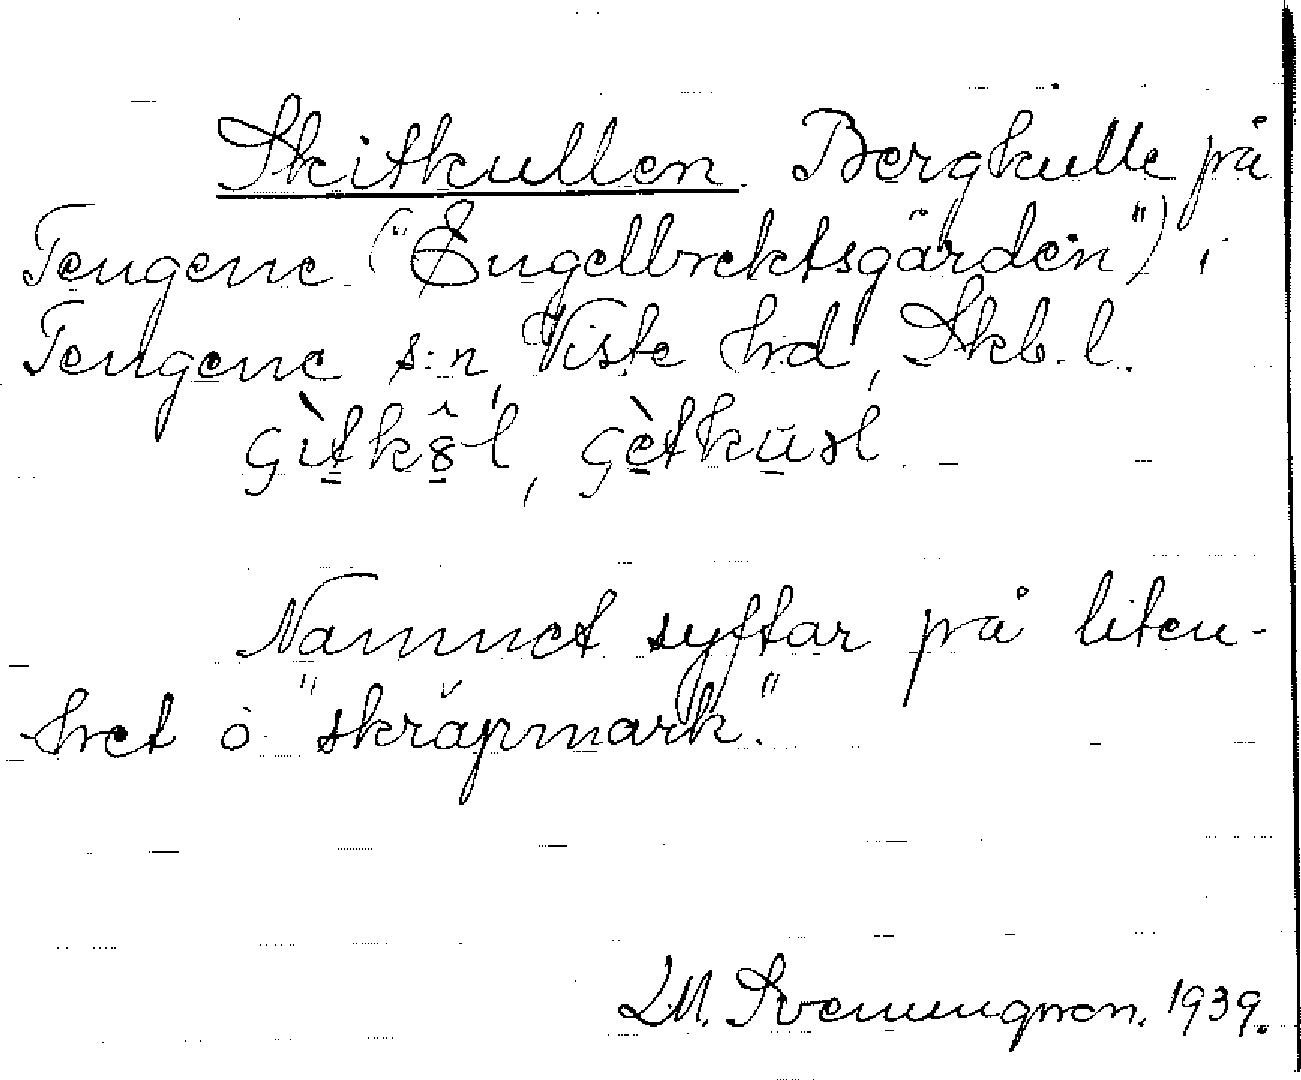 Skitkullen. Bergkulle på
Tengene ("Engelbrektsgården") i
Tengene s:n, Viste hrd, Skb. l.
Namnet syftar på liten-
het o "skräpmark."
D. M. Svenungsson. 1939.